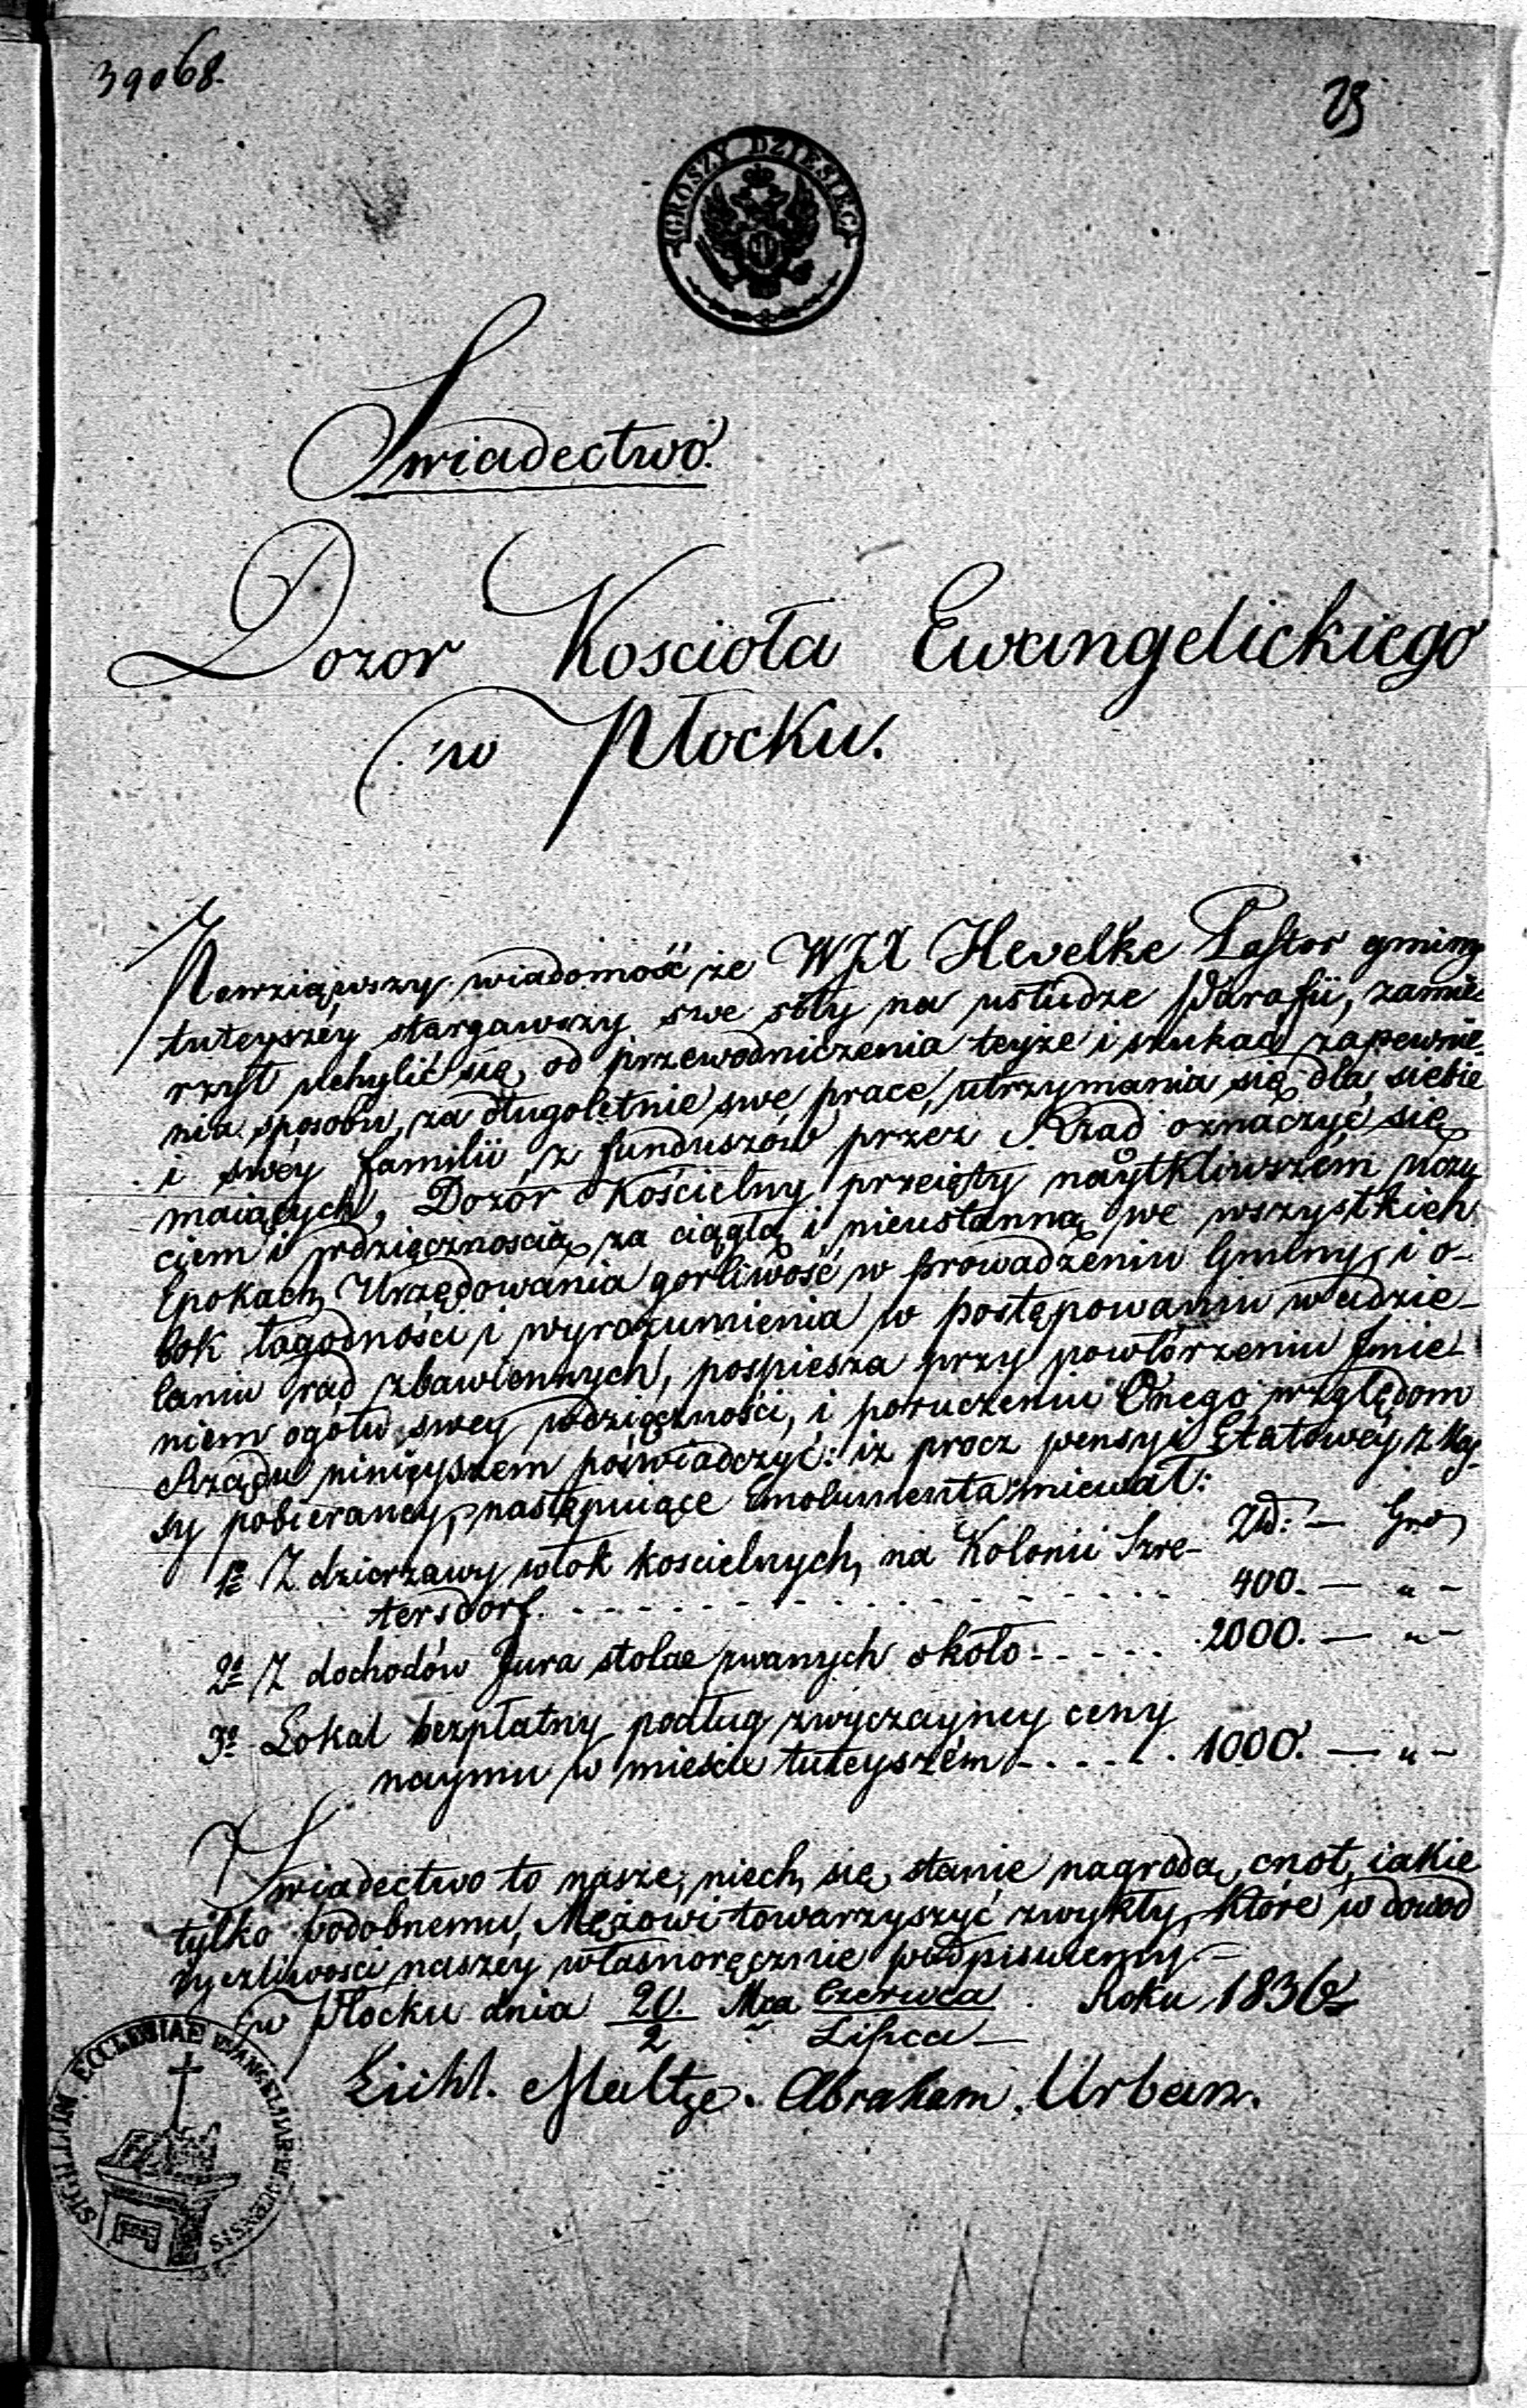 39068.
GROSZY DZIESIĘĆ
Swiadectwo.
Dozor Kościoła Ewangelickiego
w Płocku.
Powziąwszy wiadomość że WJX Hevelke Pastor gminy
tuteyszéy stargawszy swe siły na usłudze Parafii, zamie-
rzył uchylić się od przewodniczenia teyże i szukać zapewnie-
nia sposobu, za długoletnie swe prace, utrzymania się dla siebie
i swéy familii z funduszów przez Rząd oznaczyć się
maiących, Dozór Kościelny przeięty naytkliwszém uczu-
ciem i wdzięcznością za ciągłą i nieustanną we wszystkich
Epokach Urzędowania gorliwość w prowadzeniu Gminy, i o-
bok łagodności i wyrozumienia w postępowaniu w udzie-
laniu rad zbawiennych, pospiesza przy powtórzeniu Jmie-
niem ogółu swey wdzięczności, i poruczeniu Onego względom
Rządu ninieyszem poświadczyć: iż procz pensyi Etatowéy z Kas-
sy pobieraney, następuiące Emolumenta miewał:
Złł: — Gro
1o Z dzierzawy włok koscielnych, na Kolonii Szre-
tersdorf. - - - - - 400. — „ -
2o Z dochodów Jura stolae zwanych około - - - - 2000. — „ -
3o Lokal bezpłatny podług zwyczayney ceny
naymu w mieście tuteyszém - - - - 1000. — „ -
Swiadectwo to nasze, niech się stanie nagrodą cnót, iakie
tylko podobnemu Mężowi towarzyszyć zwykły, które w dowod
życzliwości naszéy własnoręcznie podpisuiemy —
w Płocku dnia 20. Mca Czerwca Roku 1836
2 Lipca —
Licht. Maltze. Abraham. Urban.
SIGILLUM ECCLESIAE EVANGELICAE